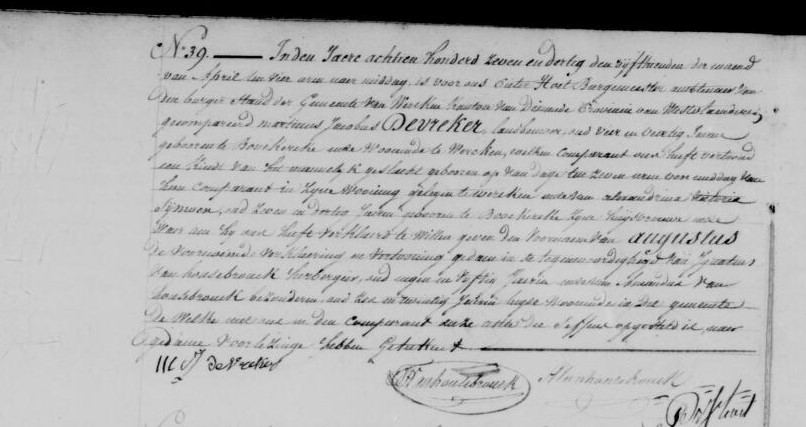 N.º 39. In den Jaere achtien honderd zeven en dertig den vyfthienden der maend
van April ten vier uren naer middag, is voor ons Pieter Hoet Burgemeester amtenaer van
den burger Stand der Gemeente van Wercken kanton van Dixmude Provincie van Westvlaenderen,
gecompareerd martinus Jacobus Devreker, landbouwer, oud vier en veertig Jaren
geboren te Bovekercke ende Woonende te Wercken, welken comparant ons heeft vertoond
een kindt van het mannelyk geslacht geboren op van dage ten zeven uren voor middag van
hem comparant in zyne Wooning gelegen te wercken ende van alexandrina Victoria
oud zeven en dertig Jaeren geboren te Bovekercke zyne huysvrouwe ende
Waer aen hy ons heeft verklaerd te Willen geven den Voornaem van augustus
de Voornoemde verklaering en vertooning gedaen in de tegenwoordigheid van Ignatius
Van housebrouck herbergier, oud negen en vyftig Jaeren ende van Amandus Van
housebrouck bezonderen, oud zes en twintig Jaeren beyde Woonende in dese gemeente
De Welke met ons en den comparant deze acte die dessens opgesteld is, naer
gedaene voorlezinge hebben Geteekent
M J deVreker
Vanhousebrouck
A Vanhousebrouck